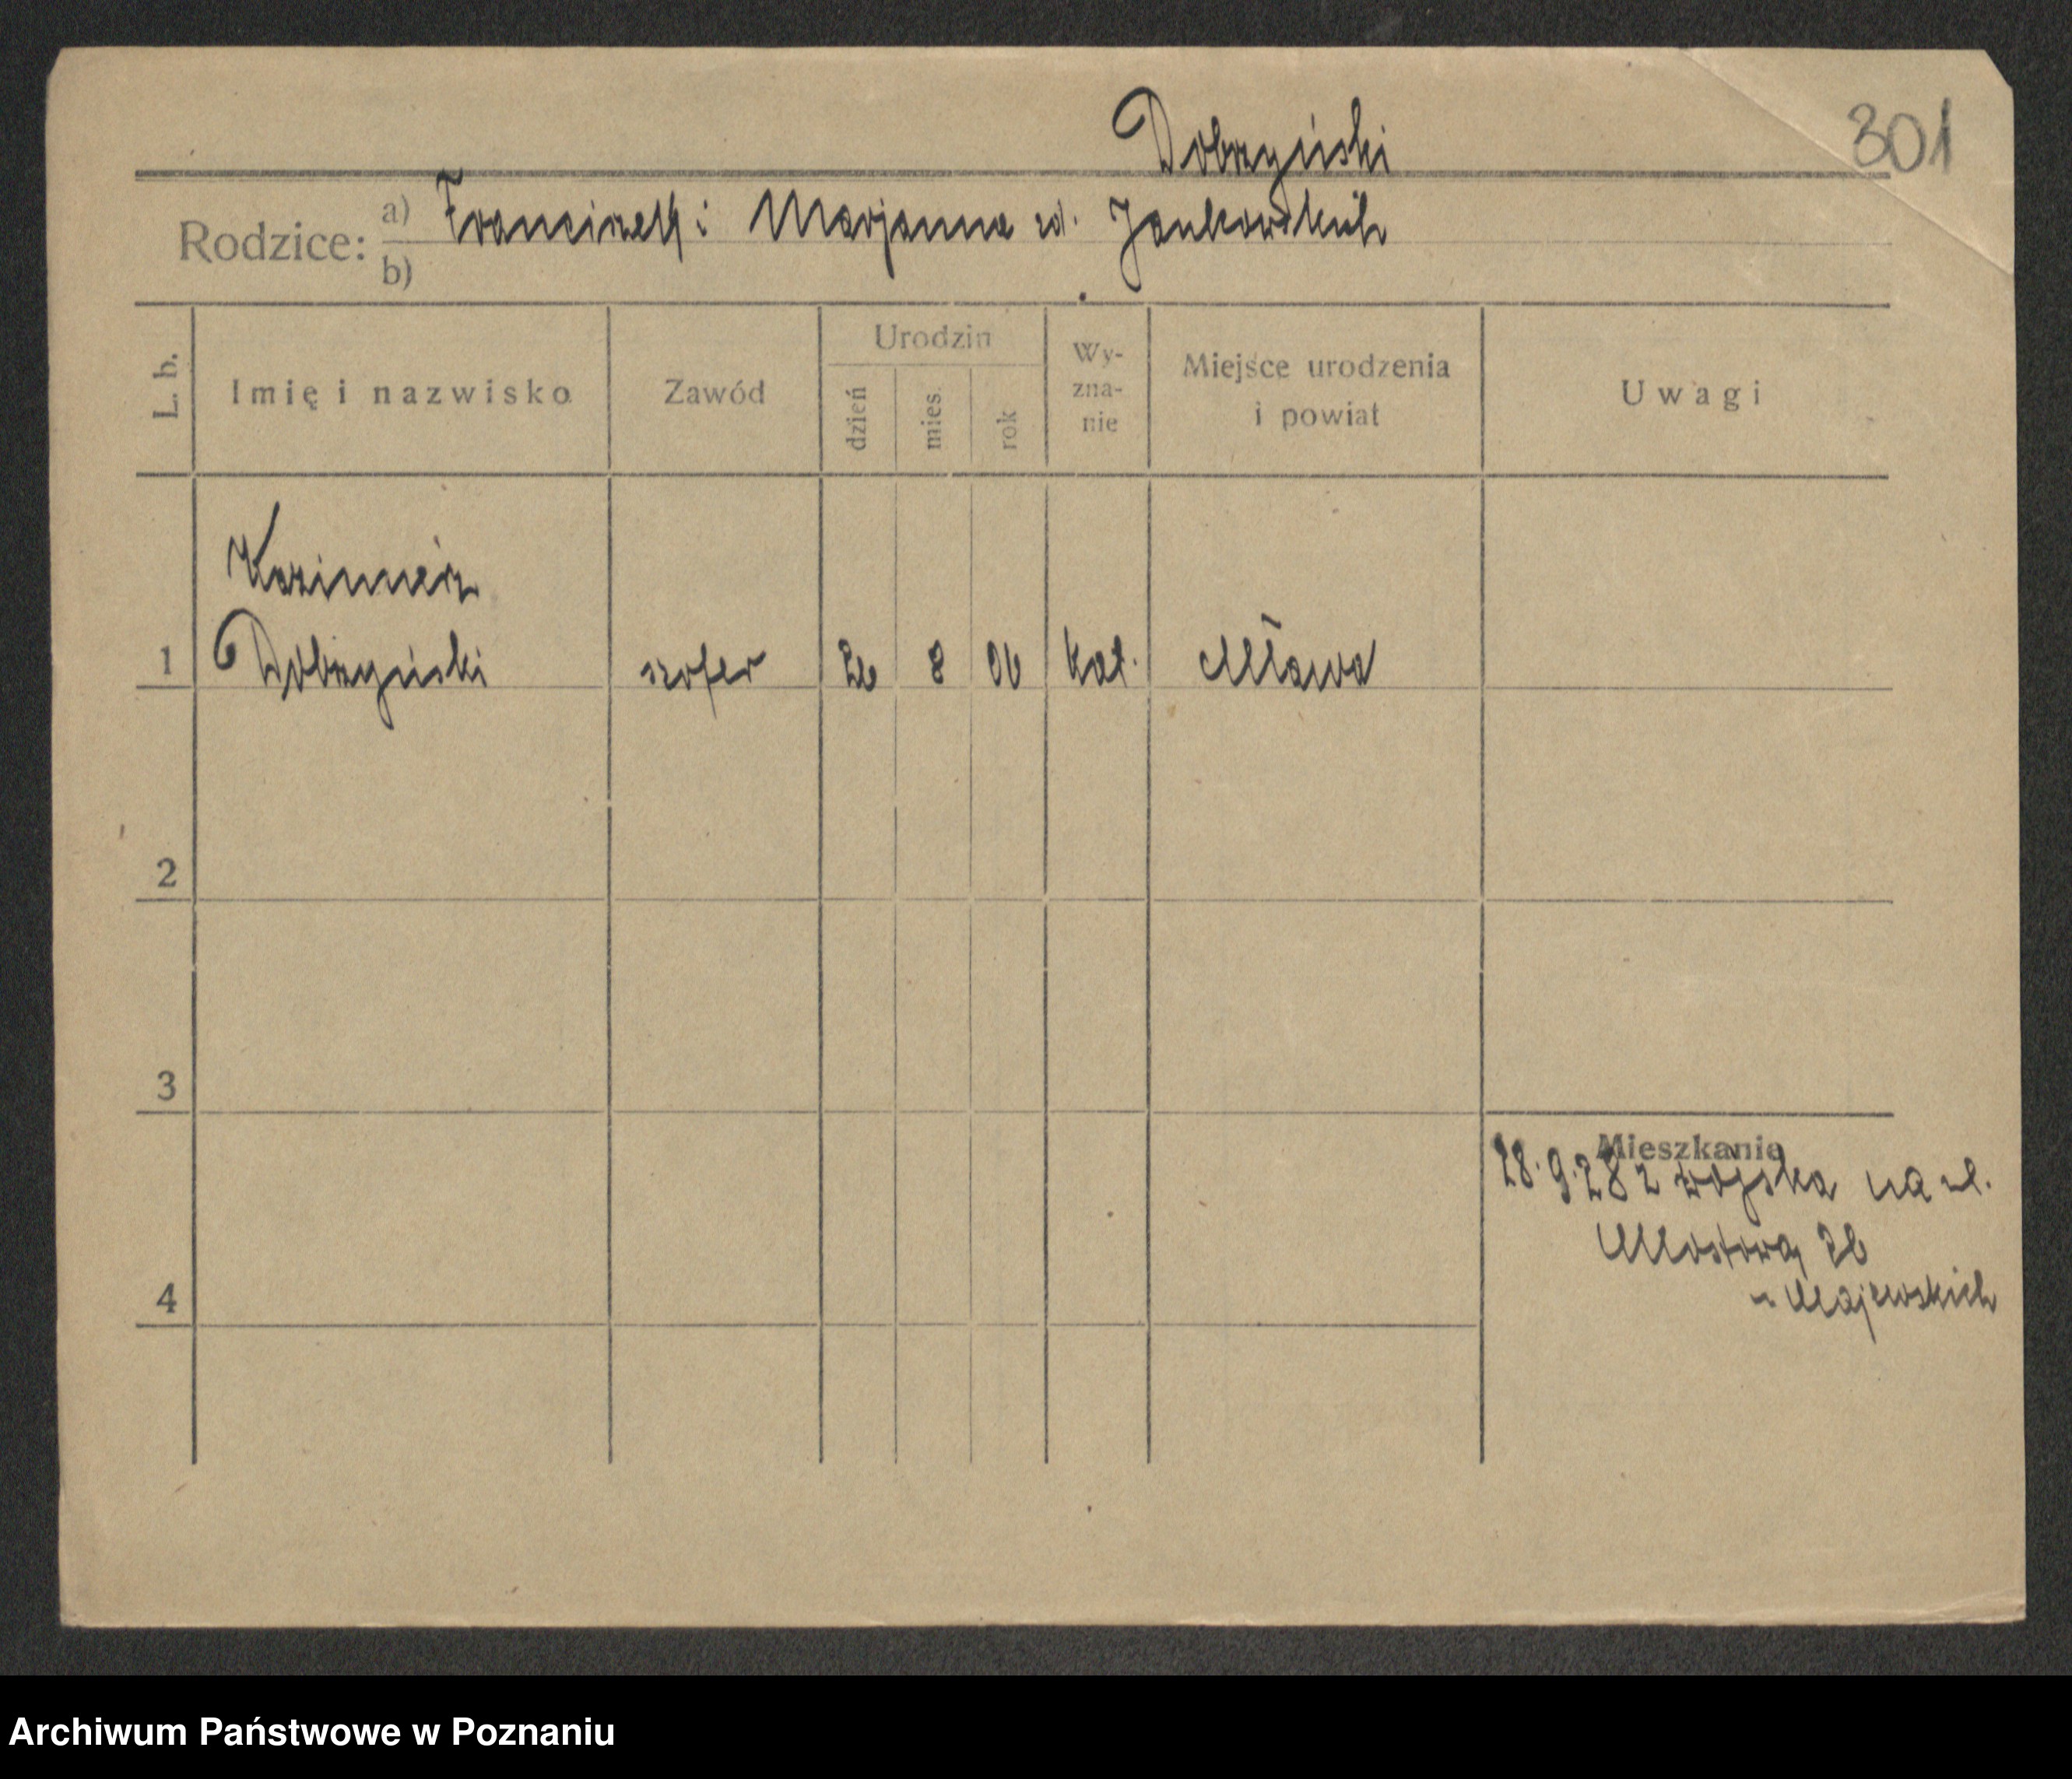 Dobrzyński
301
Rodzice: a) Franciszek i Marjanna zd. Jankowskich
b)
L. b.
Imię i nazwisko
Zawód
Urodzin
dzień
mies.
rok
Wy-
zna-
nie
Miejsce urodzenia
i powiat
Uwagi
Kazimierz
1 Dobrzyński szofer 26 8 06 kat. Mława
2
3
Mieszkanie
28.9.28 z wojska na ul.
Mostową 26
4
u Majewskich
Archiwum Państwowe w Poznaniu